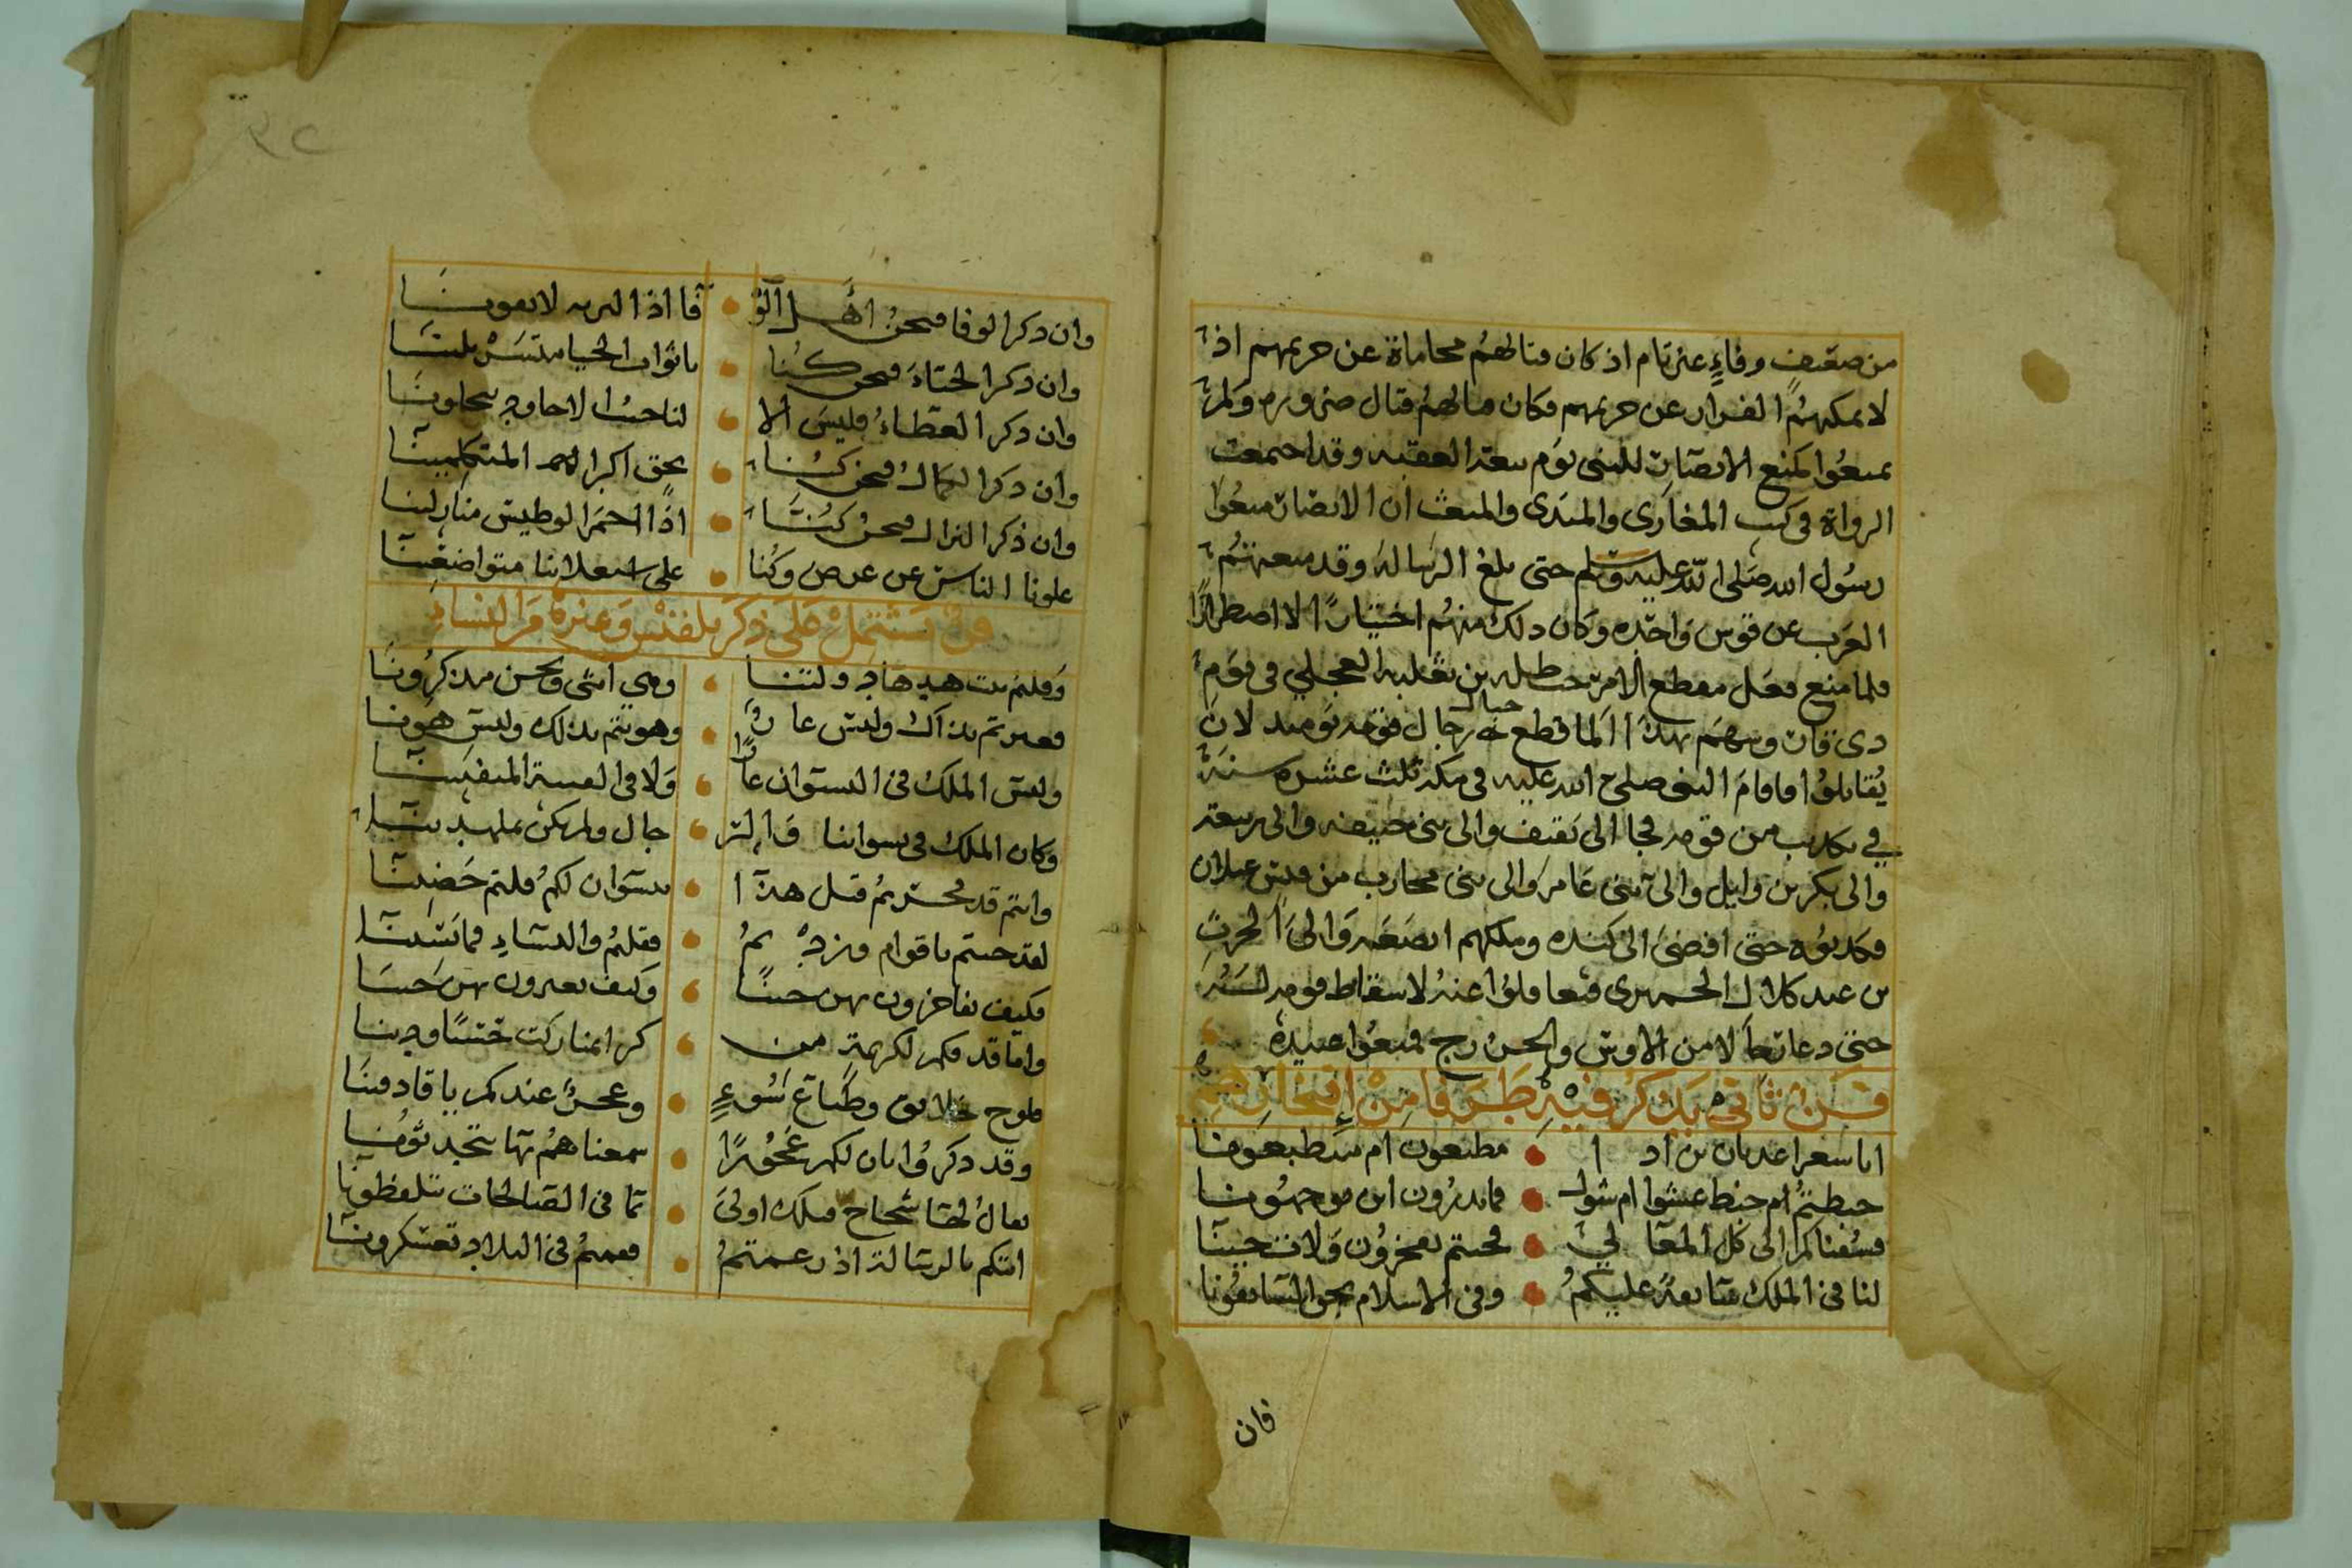 من ضعيف وفاءٍ غير تام اذ كان قتالهم محاماة عن حريمهم اذ
لا يمكنهم الفرار عن حريمهم فكان قتالهم قتال ضرورة ولم
يمنعوا كمنع الانصار للنبي يوم بيعة العقبه وقد اجمعت
الرواة في كتب المغازى والمبتدى والمبعث ان الانصار منعوا
رسول الله صلى الله عليه وسلم حتى بلغ الرساله وقد رمتهم
العرب عن قوس واحده وكان ذلك منهم اختيارًا لا اضطرارًا
فلما منع فعل مقطع الامر حنطله بن ثعلبه العجلي في يوم
ذى قار وسهم بهذا لما قطع حبال رجال قومه يوميذ لان
يقاتلوا فاقام النبى صلى الله عليه في مكه ثلث عشره سنة
في تكذيب من قومه فجا الى ثقيف والى بنى حنيفه والى ربيعة
والى بكر بن وايل والى بنى عامر والى بنى محارب من قيس عيلان
فكذبوه حتى افضى الى كنده وملكهم الصغير والى الحرث
بن عبد كلال الحميرى فتغافلوا عنه لاسقاط قومه لسنه
حتى دعا رجالا من الاوس والخزرج فمنعوا عبيده
فن ثاني يذكر فيه طرفا من إفتخارهم
ايا شعرا عدنان بن اد ا مطبعون ام متطبعونا
خبطتم ام خبط عشوا ام شول فما تدرون اين توجهونا
فسقناكم الى كل المعا لي فجيتم تفخرون ولات حينا
لنا في الملك سابقة عليكم وفي الاسلام نحن السابقونا
فان
٣٢
وان ذكر الوفا فنحن اهل الو فا اذا البريه لا يفونا
وان ذكر الحياء فنحن كنا باثواب الحيا متسربلينا
وان ذكر العطاء فليس الا لنا حسا لاحاوج يحلونا
وان ذكر الكمال فنحن كنا بحق اكبر المتكلمينا
وان ذكر النزال فنحن كنا اذا احمر الوطيس منازلينا
علونا الناس عن عرض وكنا على استعلاينا متواضعينا
فن يشتمل على ذكر بلقيس وغيرها من النساء
وقلتم بنت هدهاد ولتنا وهي انثى ونحسن مذكرونا
فعيرتم بذاك وليس عا رٌ وهويتم بذلك وليس هونا
وليس الملك في النسوان عارًا ولا في الفتية المتفتينا
وكان الملك في نسواننا والر جال ولم يكن بملهدينا
وانتم قد فخرتم قبل هذا ا بنسوان لكم فلتم حضينا
لقد جيتم باقوام وزد تم فقلتم والنساء فما نشينا
فكيف تفاخرون بهن حينًا وكيف تعيرون بهن حينا
واما قد فكم لكريمة من كرايمنا ركت حسبًا ودينا
ملوح خلايق وطباع سوءٍ وعجز عندكم يا قادمينا
وقد ذكروا بان لكم عجوزًا سمعناهم بها يتحدثونا
يقال لها سجاح فتلك اولى بما في الصالحات تلفظونا
اتتكم بالرسالة اذ زعمتم فقمتم في البلاد تعسكرونا